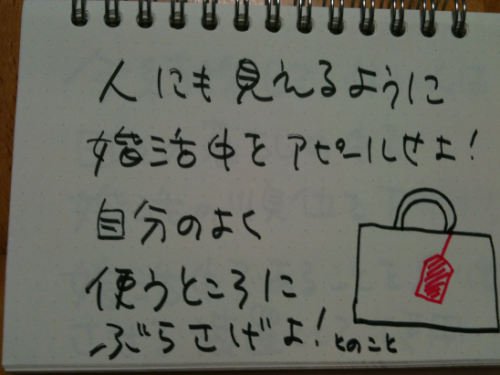 人にも見えるように
婚活中をアピールせよ!
自分のよく
使うところに
ぶらさげよ!とのこと